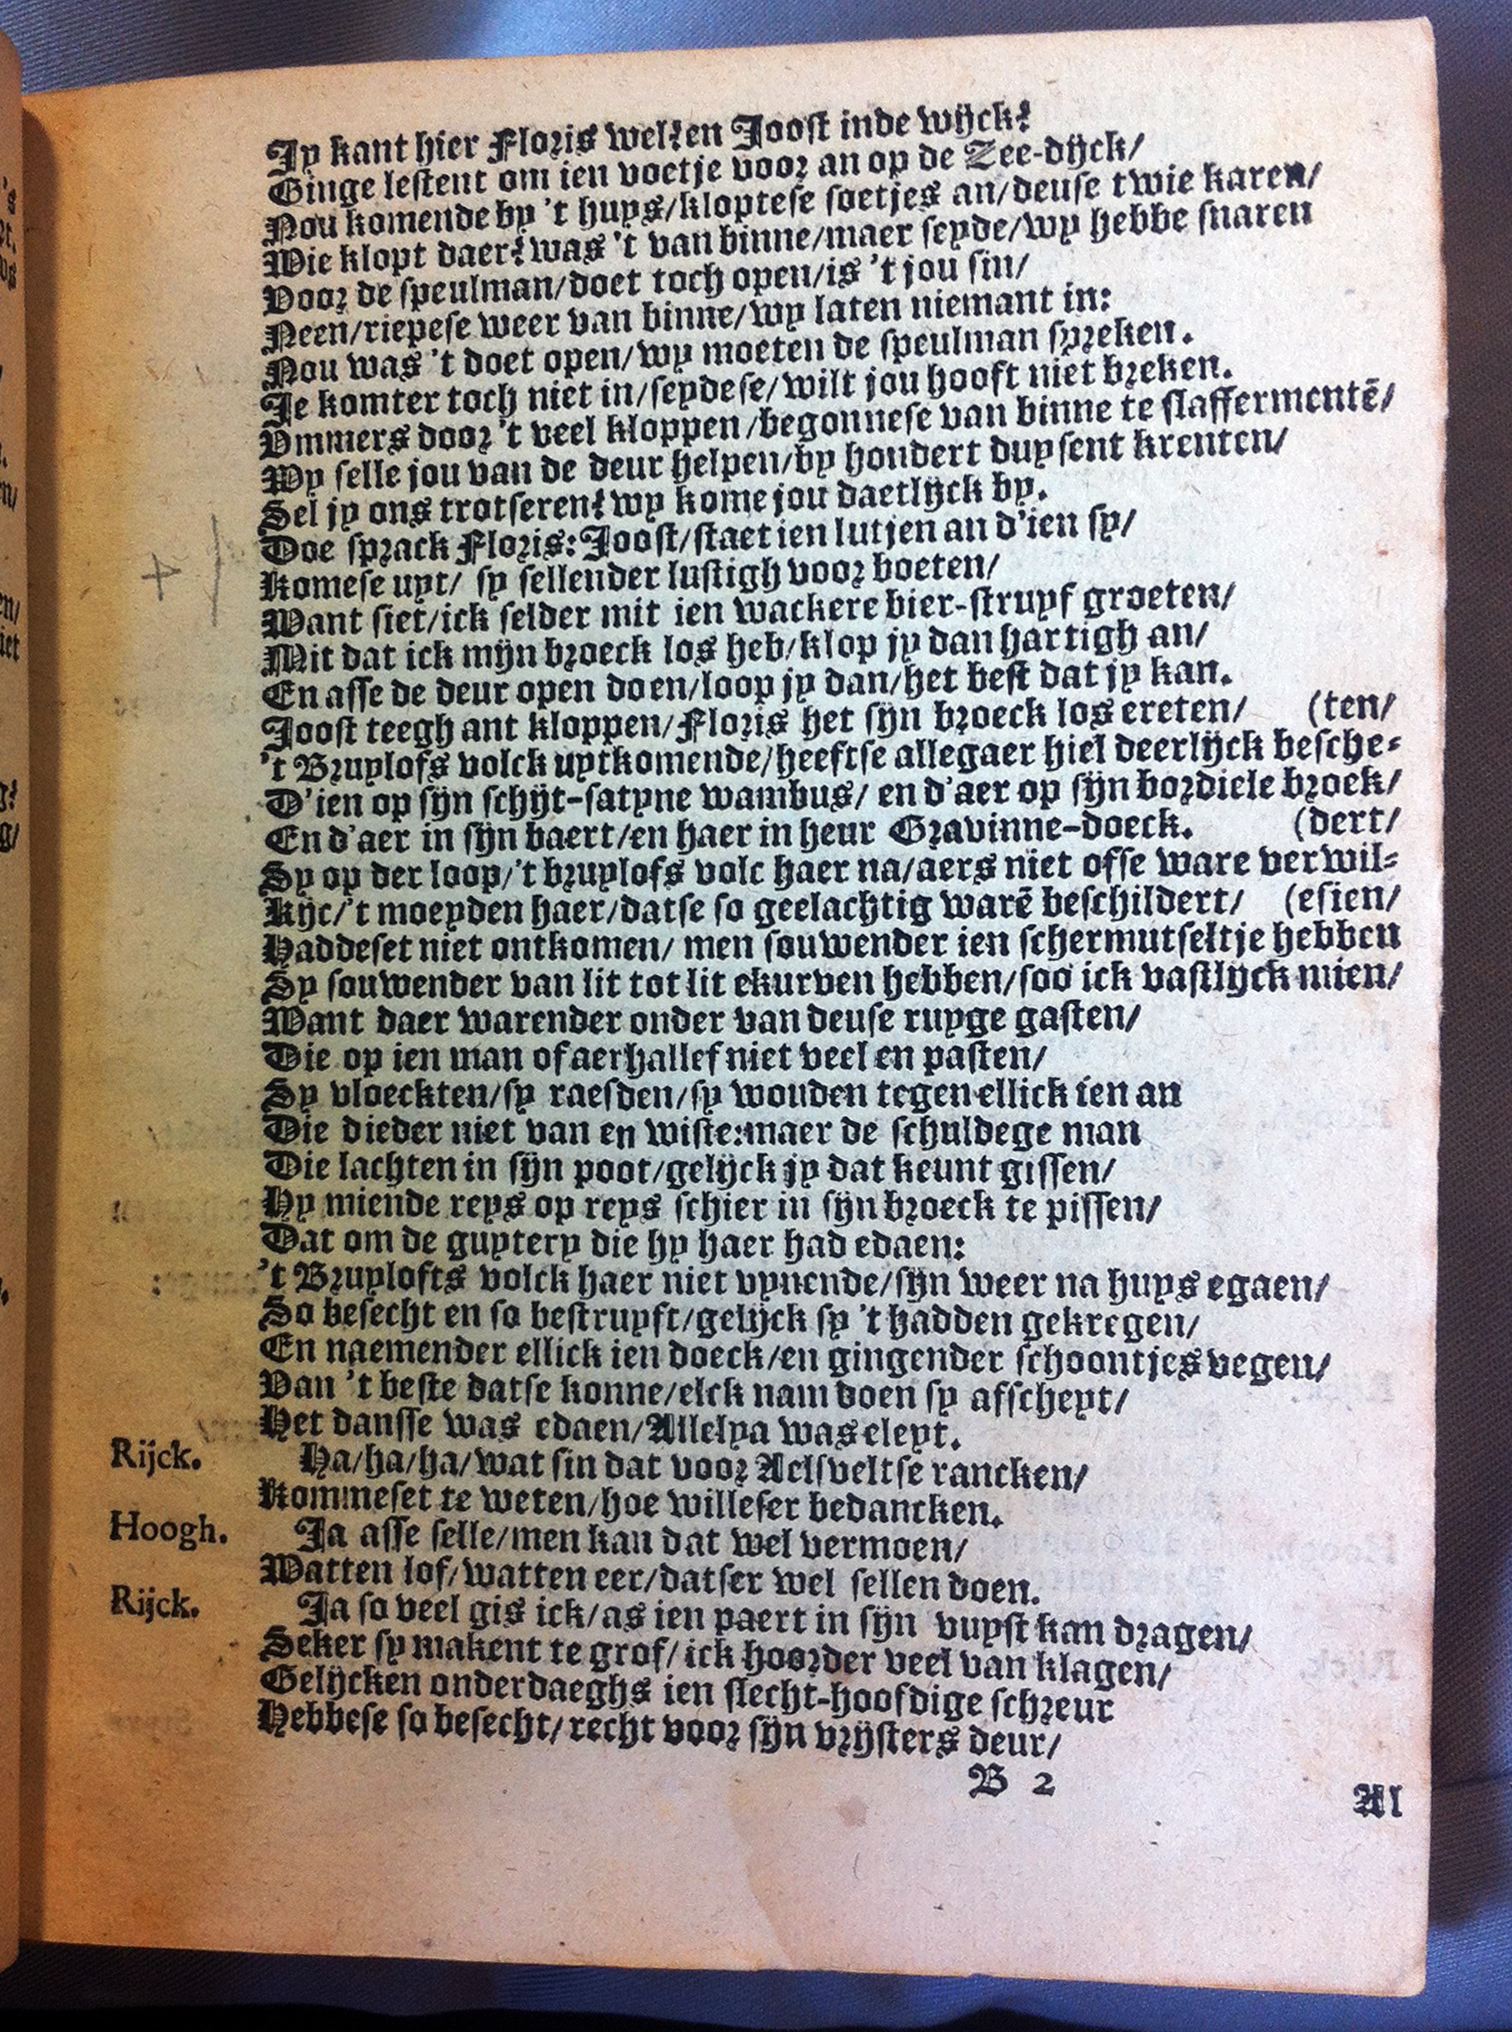 Jy kant hier Floris wel? en Joost inde wijck?
Ginge lestent om ien voetje voor an op de Zee-dijck/
Nou komende by 't huys/kloptese soetjes an/deuse twie karen/
Wie klopt daer? was 't van binne/maer seyde/wy hebbe snaren
Voor de speulman/doet toch open/is 't jou sin/
Neen/riepese weer van binne/wy laten niemant in:
Nou was 't doet open/wy moeten de speulman spreken.
Je komter toch niet in/seydese/wilt jou hooft niet breken.
Vmmers door 't veel kloppen/begonnese van binne te slaffermentē/
Wy selle jou van de deur helpen/by hondert duysent krenten/
Sel jy ons trotseren? wy kome jou daetlijck by.
Doe sprack Floris: Joost/staet ien lutjen an d'ien sy/
Komese uyt/ sy sellender lustigh voor boeten/
Want siet/ick selder mit ien wackere bier-struyf groeten/
Mit dat ick mijn broeck los heb/klop jy dan hartigh an/
En asse de deur open doen/loop jy dan/het best dat jy kan.
Joost teegh ant kloppen/Floris het sijn broeck los ereten/ (ten/
't Bruylofs volck uytkomende/heeftse allegaer hiel deerlijck besche-
D'ien op sijn schijt-satyne wambus/ en d'aer op sijn bordiele broek/
En d'aer in sijn baert/en haer in heur Gravinne-doeck. (dert/
Sy op der loop/'t bruylofs volc haer na/aers niet offe ware verwil-
Kijc/'t moeyden haer/datse so geelachtig warē beschildert/ (esien/
Haddeset niet ontkomen/ men souwender ien schermutseltje hebben
Sy souwender van lit tot lit ekurven hebben/soo ick vastlijck mien/
Want daer warender onder van deuse ruyge gasten/
Die op ien man of aerhallef niet veel en pasten/
Sy vloeckten/sy raesden/sy wouden tegen ellick ien an
Die dieder niet van en wiste:maer de schuldege man
Die lachten in sijn poot/gelijck jy dat keunt gissen/
Hy miende reys op reys schier in sijn broeck te pissen/
Dat om de guytery die hy haer had edaen:
't Bruylofts volck haer niet vynende/sijn weer na huys egaen/
So besecht en so bestruyft/gelijck sy 't hadden gekregen/
En naemender ellick ien doeck/en gingender schoontjes vegen/
Van 't beste datse konne/elck nam doen sy afscheyt/
Het dansse was edaen/Allelya was eleyt.
Rijck. Ha/ha/ha/wat sin dat voor Aelsveltse rancken/
Kommeset te weten/hoe willeser bedancken.
Hoogh. Ja asse selle/men kan dat wel vermoen/
Watten lof/watten eer/datser wel sellen doen.
Rijck. Ja so veel gis ick/as ien paert in sijn vuyst kan dragen/
Seker sy makent te grof/ick hoorder veel van klagen/
Gelijcken onderdaeghs ien slecht-hoofdige schreur
Hebbese so besecht/recht voor sijn vrijsters deur/
B 2
Al